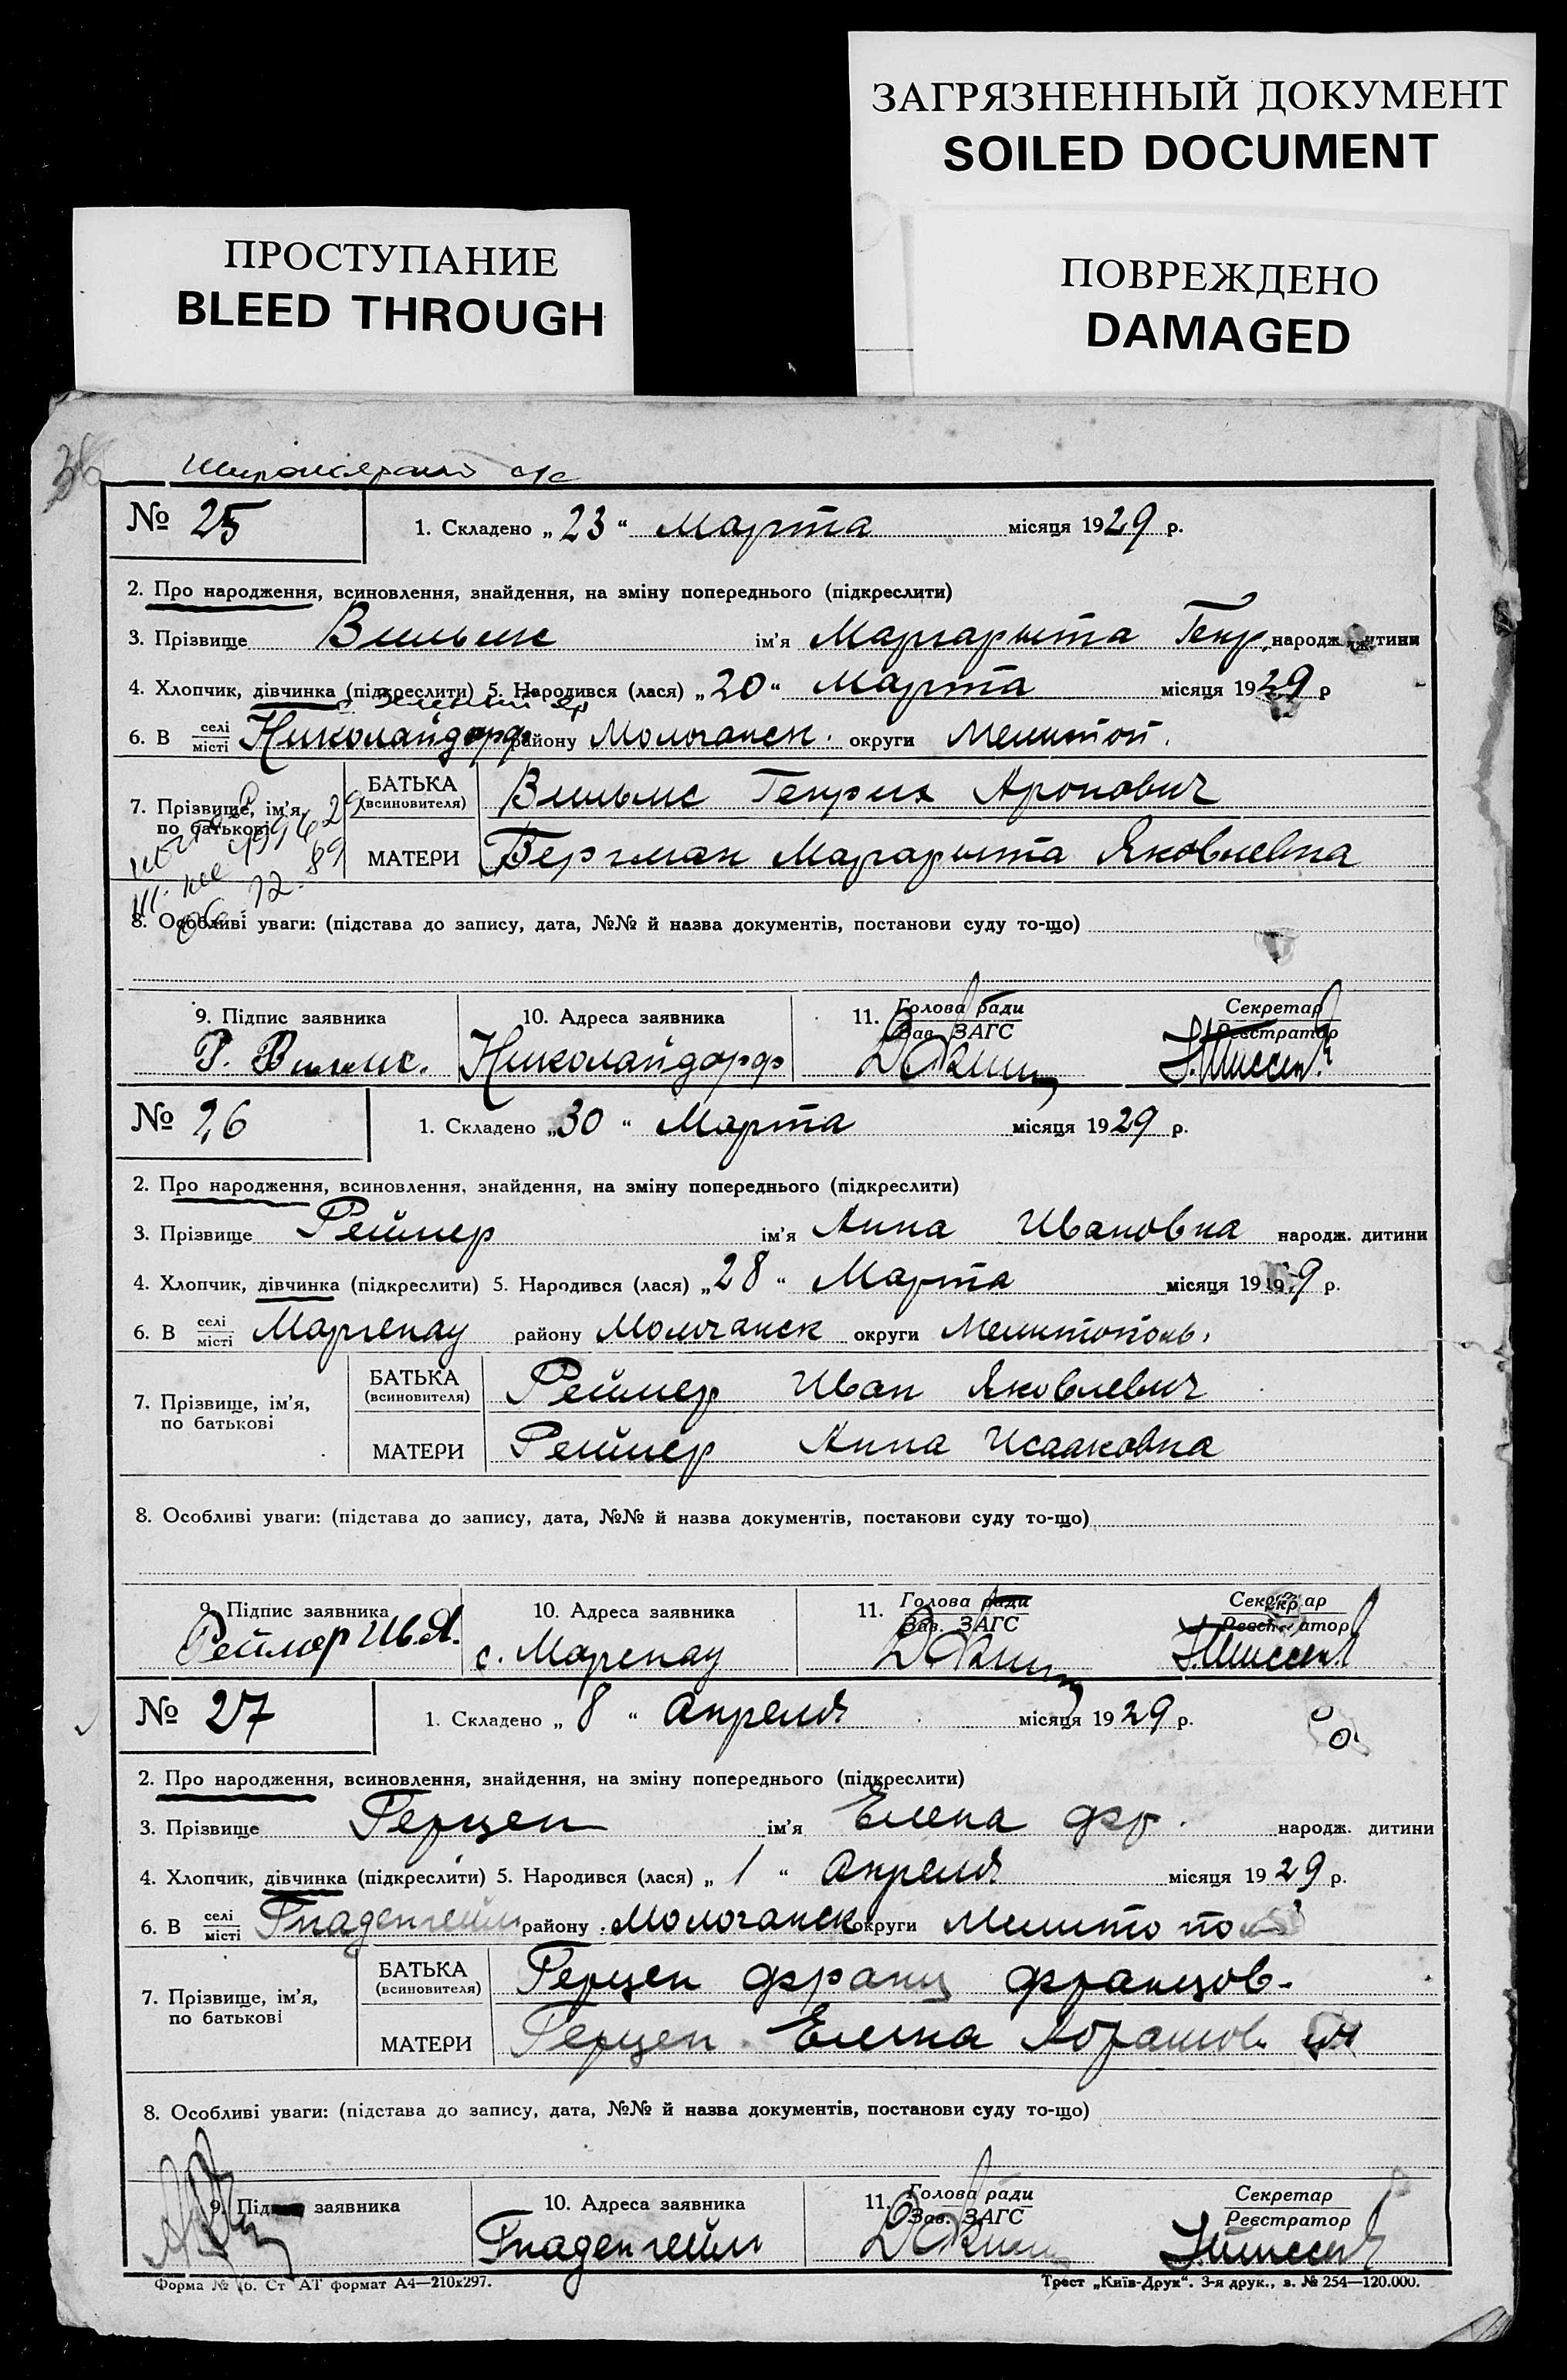 ЗАГРЯЗНЕННЫЙ ДОКУМЕНТ
SOILED DOCUMENT
ПРОСТУПАНИЕ
BLEED THROUGH
ПОВРЕЖДЕНО
DAMAGED
36
с/с
№ 25
1. Складено „23“ Марта місяця 1929 р.
2. Про народження, всиновлення, знайдення, на зміну попереднього (підкреслити)
3. Прізвище Вильмс ім'я Маргарыта Генр. народж. дитини
4. Хлопчик, дівчинка (підкреслити) 5. Народився (лася) „20“ Марта місяця 1929 р
с. Зеленый яр
6. В селі місті Николайдорф району Молочанск. округи Мелитоп.
7. Прізвище, ім'я, по батькові
БАТЬКА (всиновителя) Вильмс Генрих Аронович
МАТЕРИ Бергман Маргарыта Яковлевна
8. Особливі уваги: (підстава до запису, дата, №№ й назва документів, постанови суду то-що)
9. Підпис заявника 10. Адреса заявника 11. Голова ради Зав. ЗАГС Секретар Реєстратор
Г. Вильмс. Николайдорф
№ 26
1. Складено „30“ Марта місяця 1929 р.
2. Про народження, всиновлення, знайдення, на зміну попереднього (підкреслити)
3. Прізвище Реймер ім'я Анна Ивановна народж. дитини
4. Хлопчик, дівчинка (підкреслити) 5. Народився (лася) „28“ Марта місяця 1929 р.
6. В селі місті Маргенау району Молочанск округи Мелитополь.
7. Прізвище, ім'я, по батькові
БАТЬКА (всиновителя) Реймер Иван Яковлевич
МАТЕРИ Реймер Анна Исааковна
8. Особливі уваги: (підстава до запису, дата, №№ й назва документів, постанови суду то-що)
9. Підпис заявника 10. Адреса заявника 11. Голова ради Зав. ЗАГС Секретар Реєстратор
Реймер Ив.Я. с. Маргенау
№ 27
1. Складено „8“ Апреля місяця 1929 р.
2. Про народження, всиновлення, знайдення, на зміну попереднього (підкреслити)
3. Прізвище Герцен ім'я Елена Фр. народж. дитини
4. Хлопчик, дівчинка (підкреслити) 5. Народився (лася) „1“ Апреля місяця 1929 р.
6. В селі місті Гнаденгейм району Молочанск округи Мелитопол
7. Прізвище, ім'я, по батькові
БАТЬКА (всиновителя) Герцен Франц Францов.
МАТЕРИ Герцен Елена Абрамов.
8. Особливі уваги: (підстава до запису, дата, №№ й назва документів, постанови суду то-що)
9. Підпис заявника 10. Адреса заявника 11. Голова ради Зав. ЗАГС Секретар Реєстратор
Гнаденгейм
Форма № 6. Ст АТ формат А4—210х297.
Трест „Київ-Друк“. 3-я друк., з. № 254—120.000.